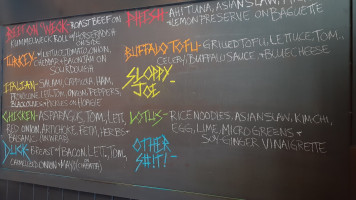 BEEF ON "WECK - ROAST BEEF ON
KUMMELWECK ROLL w/ HORSERADISH
ON SIDE
TURKEY - LETTUCE, TOMATO, ONION,
CHEDDAR & BACON JAM ON
SOURDOUGH
ITALIAN - SALAMI, CAPPICOLA, HAM,
PROVOLONE, LETT, TOM, ONION, PEPPERS,
PICKLES ON HOAGIE
CHICKEN - ASPARAGUS, TOM, LETT,
RED ONION, ARTICHOKE, FETA, HERBS +
BALSAMIC ON
DUCK - BREAST w/ BACON, LETT, TOM,
CARAMELIZED ONION + MAYO ON CIABATTA
PHISH - AHI TUNA, ASIAN SLAW,
+ LEMON PRESERVE ON BAGUETTE
BUFFALO TOFU - GRILLED TOFU, LETTUCE, TOM,
CELERY, BUFFALO SAUCE & BLUE CHEESE
SLOPPY
JOE
LOTUS - RICE NOODLES, ASIAN SLAW, KIMCHI,
EGG, LIME, MICROGREENS &
SOY-GINGER VINAIGRETTE
OTHER
S#!T! -